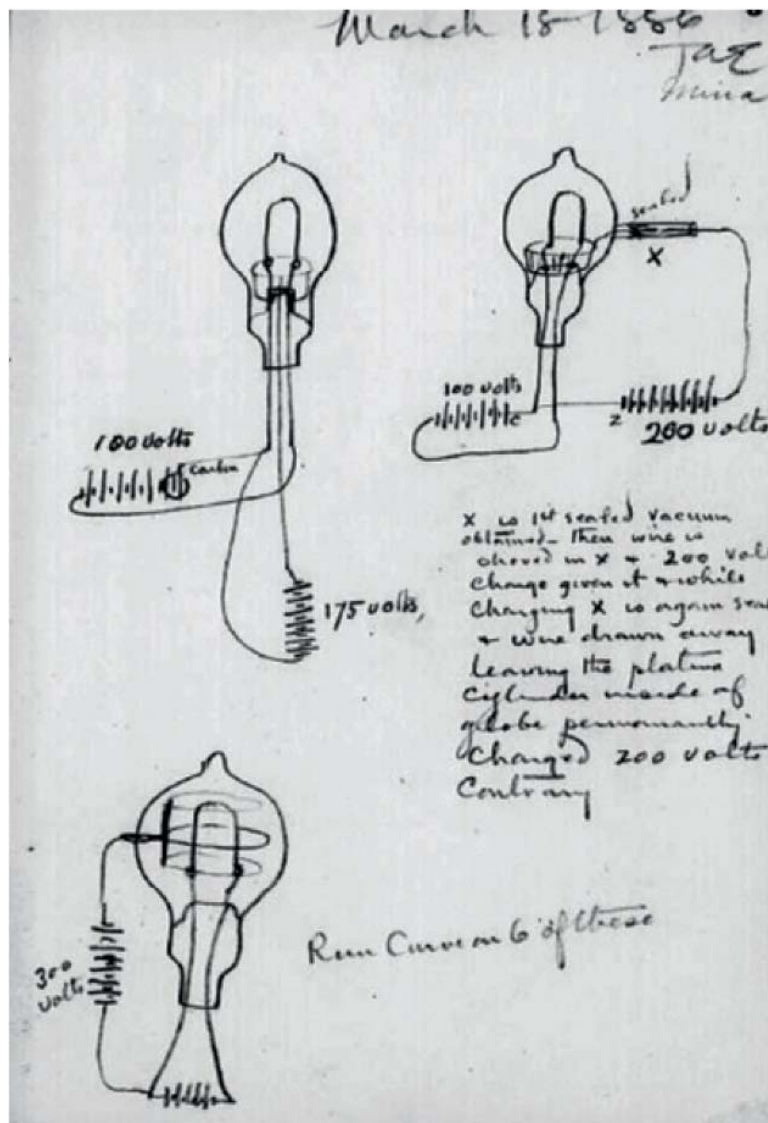 March 18 1886
TAE
Mina
sealed
X
100 volts
c
z
200 volts
100 volts
Carbon
175 volts,
X is 1st sealed vacuum
obtained - then wire is
shoved in X & 200 volt
charge given it & while
charging X is again sea
& wire drawn away
leaving the platina
Cylinder inside of
globe permanantly
Charged 200 volts
Contrary
300
volts
Run Curve on 6 of these